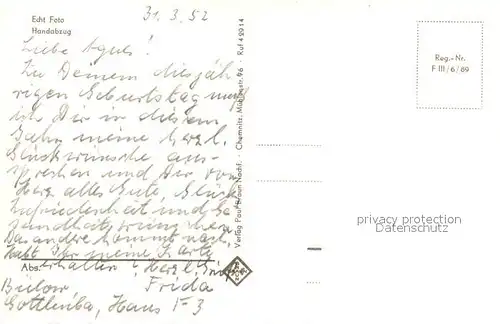 31.3.52
Echt Foto
Handabzug
Liebe Agnes!
Zu Deinem diesjäh-
rigen Geburtstag muß
ich Dir in diesem
Jahr meine herzl.
Glückwünsche aus-
sprechen und Dir von
Herz. alles Gute, Glück
Zufriedenheit und Ge-
sundheit
Das andere kommt nach.
Habt Ihr meine Karte
Abs.
erhalten? Herzl. Grüße
Bülow Frida
Gottleuba, Haus F 3
Verlag Paul Braun Nachf. · Chemnitz, 96 · Ruf 42914
Reg.-Nr.
F III/6/69
privacy protection
Datenschutz